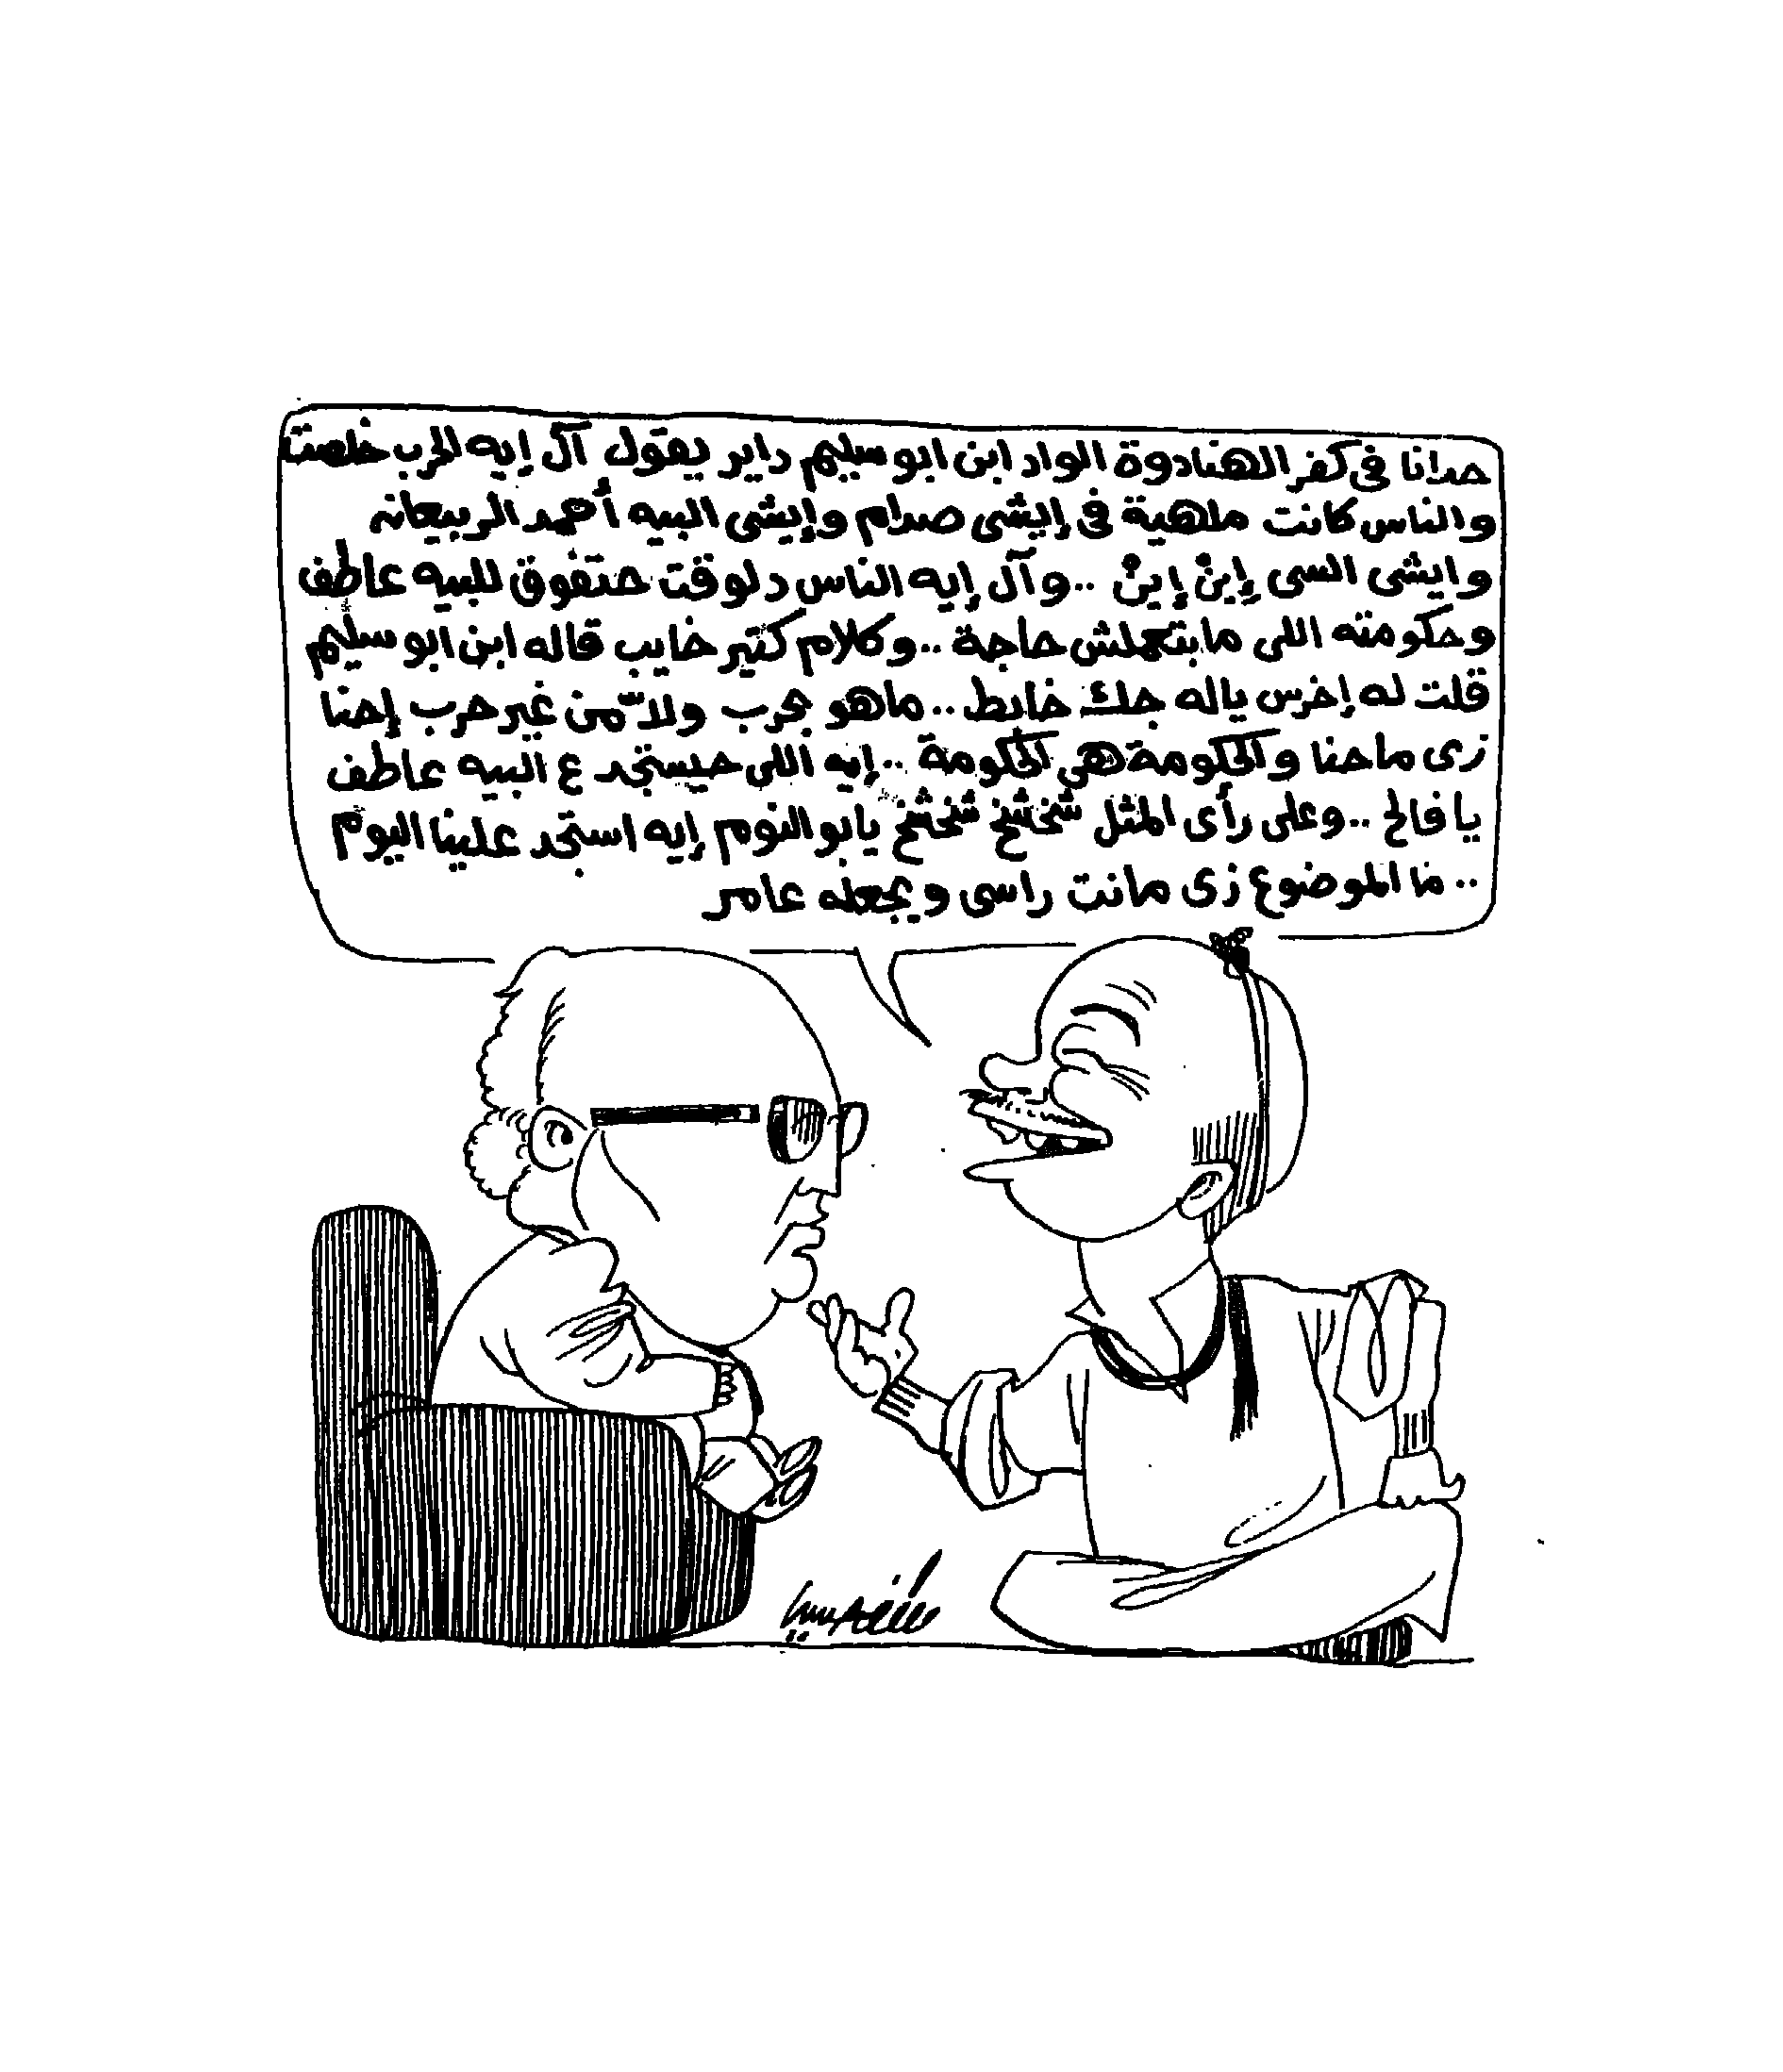 حدانا فى كفر الهنادوة الواد ابن ابو سليم داير يقول آل إيه الحرب خلصت
والناس كانت ملهية فى إيشى صدام وإيشى البيه أحمد الربيعانه
وايشى السى إنْ إينْ .. وآل إيه الناس دلوقت حتفوق للبيه عاطف
وحكومته اللى مابتعملش حاجة .. وكلام كتير خايب قاله ابن ابو سليم
قلت له إخرس ياله جك خابط .. ماهو بحرب ولا من غير حرب إحنا
زى ماحنا والحكومة هى الحكومة .. إيه اللى حيستجد ع البيه عاطف
يا فالح .. وعلى رأى المثل شخشخ شخشخ يابو النوم إيه استجد علينا اليوم
.. ما الموضوع زى مانت راسى ويجعله عامر